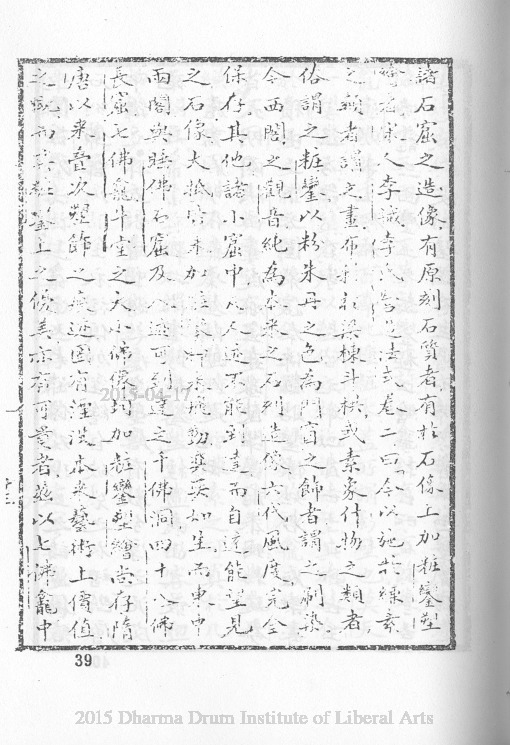 諸石窟之造像有原刻石質者有於石像上加粧鑾塑
者宋人李誡李氏營造法式卷二曰今以施於縑素
之類者謂之畫布彩於梁棟斗栱或素象什物之類者
俗謂之粧鑾以粉朱丹之色為門窗之飾者謂之刷染
今西閣之觀音純為本來之石刻造像六代風度完全
保存其他諸小窟中凡人迹不能到達而自遠能望見
之石像大抵皆未加粧鑾衣飛動奕奕如生而東中
兩閣與睡佛石窟及人迹可到達之千佛洞四十八佛
長窟七佛龕牛堂之大小佛像均加粧鑾塑繪尚存隋
唐以來疊次塑飾之痕迹固有湮沒本來藝術上價值
之感而其粧鑾上之優美亦有可貴者茲以七佛龕中
39
2015-04-17
2015 Dharma Drum Institute of Liberal Arts